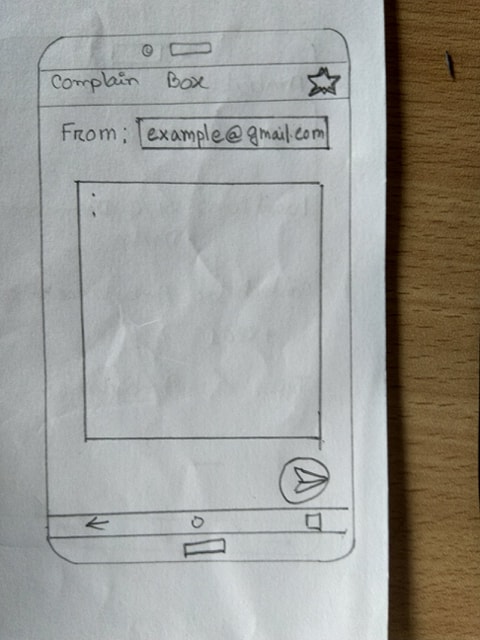 Complain Box
From: example@gmail.com
: